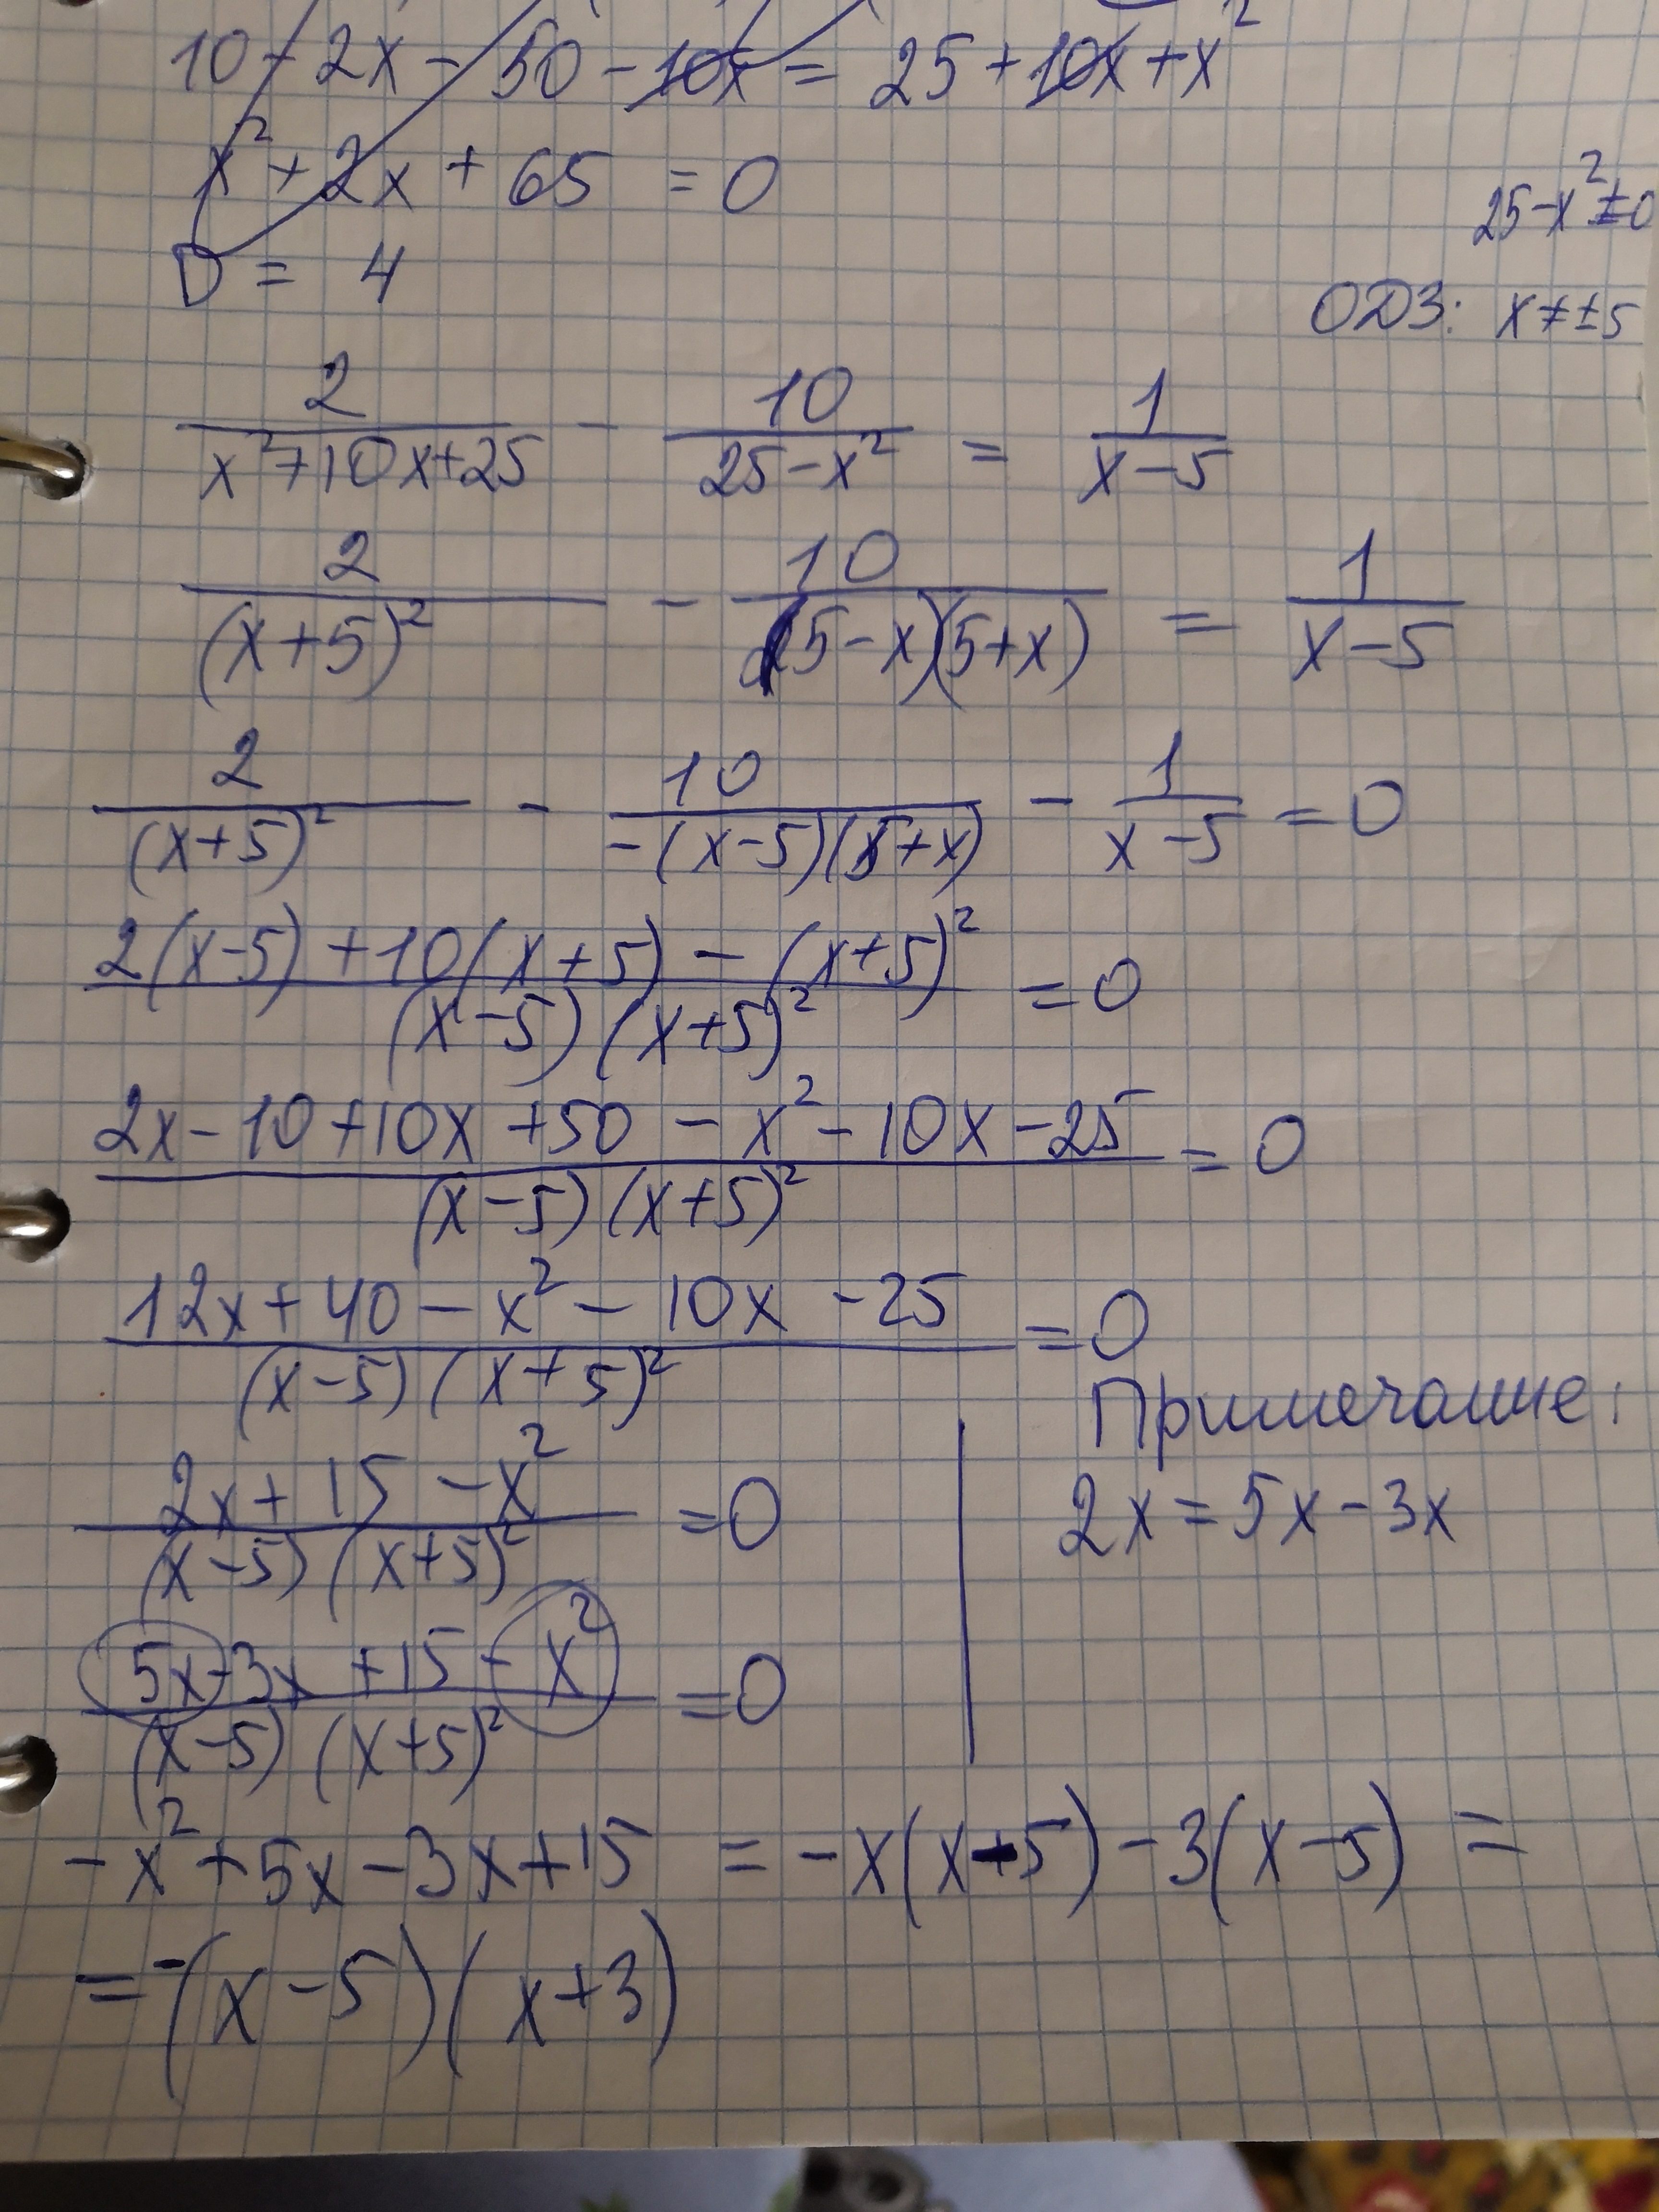 10 - 2x - 50 - 10x = 25 + 10x + x²
x² + 2x + 65 = 0
D = 4
25-x²≠0
ОДЗ: x≠±5
2/(x²+10x+25) - 10/(25-x²) = 1/(x-5)
2/(x+5)² - 10/((5-x)(5+x)) = 1/(x-5)
2/(x+5)² - 10/(-(x-5)(5+x)) - 1/(x-5) = 0
(2(x-5)+10(x+5)-(x+5)²)/((x-5)(x+5)²) = 0
(2x-10+10x+50-x²-10x-25)/((x-5)(x+5)²) = 0
(12x+40-x²-10x-25)/((x-5)(x+5)²) = 0
(2x+15-x²)/((x-5)(x+5)²) = 0
(5x-3x+15-x²)/((x-5)(x+5)²) = 0
Примечание:
2x = 5x-3x
-x²+5x-3x+15 = -x(x-5)-3(x-5) =
= -(x-5)(x+3)